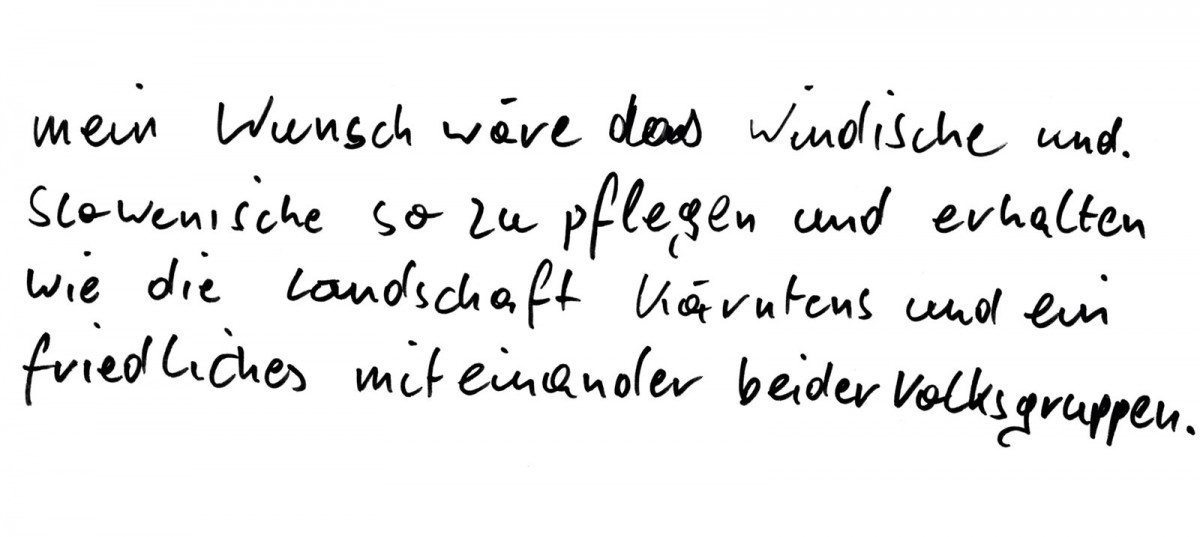 mein Wunsch wäre das Windische und.
Slowenische so zu pflegen und erhalten
wie die Landschaft Kärntens und ein
friedliches miteinander beider Volksgruppen.